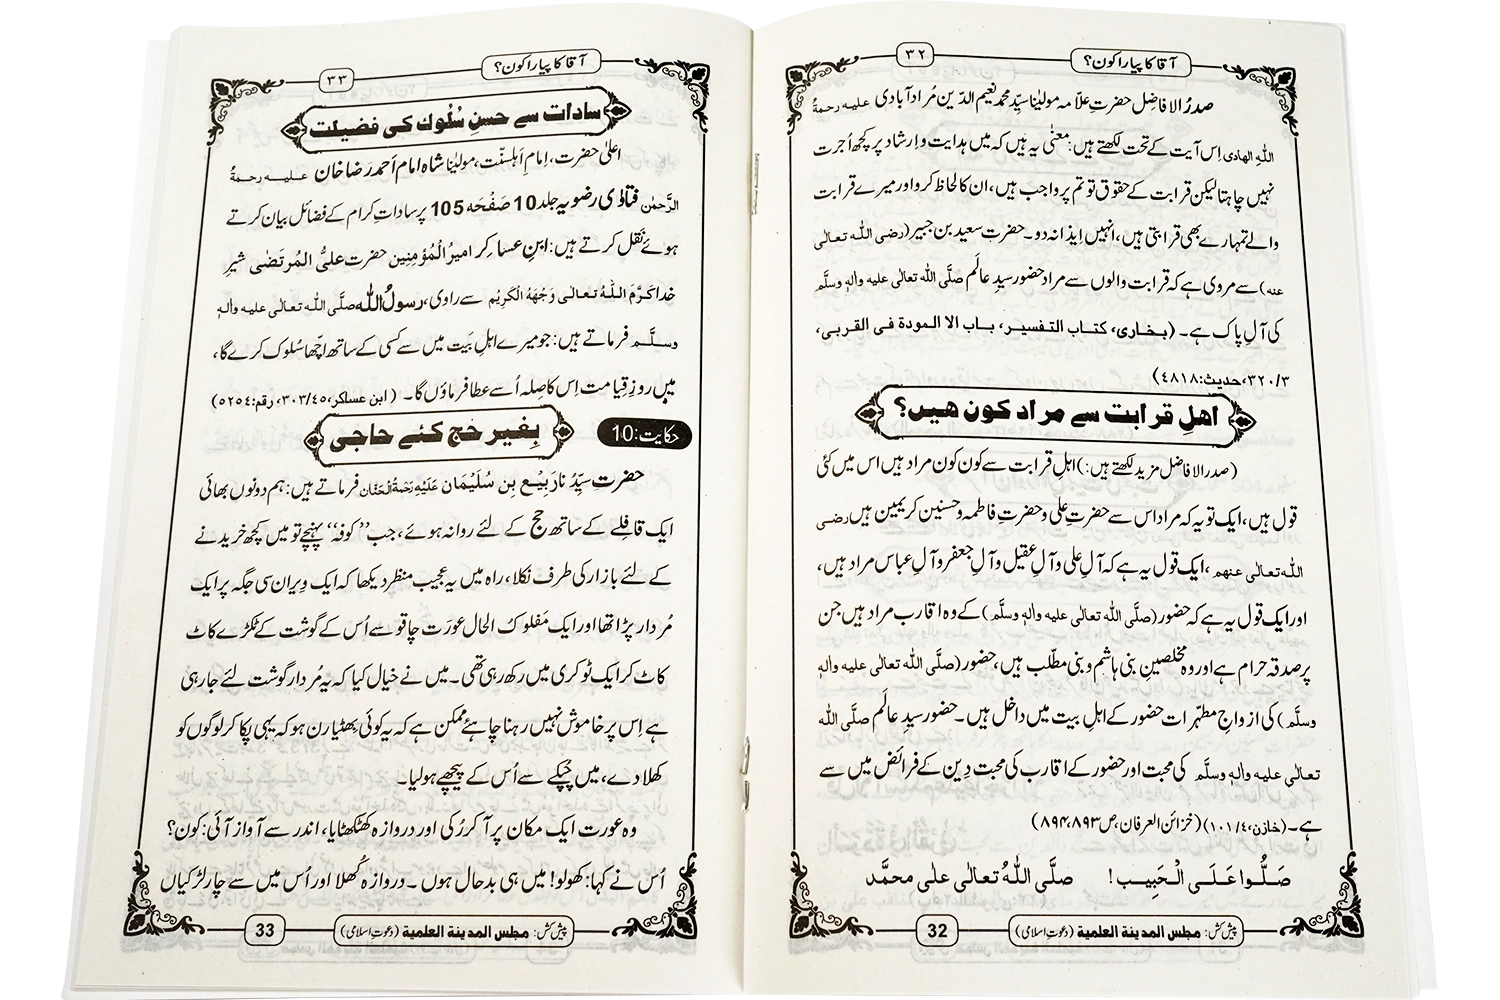 آقا کا پیارا کون؟
۳۲
صدرُ الافاضِل حضرتِ علّامہ مولیٰنا سیِّد محمد نعیم الدّین مُراد آبادی علیہ رحمۃُ
اللہِ الہادی اِس آیت کے تحت لکھتے ہیں: معنٰی یہ ہیں کہ میں ہدایت و اِرشاد پر کچھ اُجرت
نہیں چاہتا لیکن قرابت کے حقوق تو تم پر واجب ہیں، ان کا لحاظ کرو اور میرے قرابت
والے تمہارے بھی قرابتی ہیں، انہیں ایذا نہ دو۔ حضرتِ سعید بن جبیر (رضی اللہ تعالٰی
عنہ) سے مروی ہے کہ قرابت والوں سے مراد حضور سیدِ عالَم صلَّی اللہ تعالٰی علیہ واٰلہٖ وسلَّم
کی آلِ پاک ہے۔ (بخاری، کتاب التفسیر، باب الا المودة فی القربی،
۳۲۰/۳، حدیث:۴۸۱۸)
اھلِ قرابت سے مراد کون ھیں؟
(صدر الافاضل مزید لکھتے ہیں:) اہلِ قرابت سے کون کون مراد ہیں اس میں کئی
قول ہیں، ایک تو یہ کہ مراد اس سے حضرتِ علی و حضرتِ فاطمہ و حسنین کریمین ہیں رضی
اللہ تعالٰی عنہم، ایک قول یہ ہے کہ آلِ علی و آلِ عقیل و آلِ جعفر و آلِ عباس مراد ہیں،
اور ایک قول یہ ہے کہ حضور (صلَّی اللہ تعالٰی علیہ واٰلہٖ وسلَّم) کے وہ اقارب مراد ہیں جن
پر صدقہ حرام ہے اور وہ مخلصینِ بنی ہاشم و بنی مطّلب ہیں، حضور (صلَّی اللہ تعالٰی علیہ واٰلہٖ
وسلَّم) کی ازواجِ مطہّرات حضور کے اہلِ بیت میں داخل ہیں۔ حضور سیدِ عالَم صلَّی اللہ
تعالٰی علیہ واٰلہٖ وسلَّم کی محبت اور حضور کے اقارب کی محبت دِین کے فرائض میں سے
ہے۔ (خازن، ۱۰۱/۴) (خزائن العرفان، ص۸۹۴،۸۹۳)
صَلُّوا عَلَی الْحَبِیب! صلَّی اللہُ تعالٰی علٰی محمَّد
پیش کش: مجلس المدینۃ العلمیۃ (دعوتِ اسلامی)
32
آقا کا پیارا کون؟
۳۳
سادات سے حسنِ سُلوك کی فضیلت
اعلیٰ حضرت، اِمامِ اَہلسنّت، مولیٰنا شاہ امام اَحمد رَضا خان علیہ رحمۃُ
الرَّحمٰن فتاوٰی رضویہ جلد 10 صَفْحَہ 105 پر ساداتِ کرام کے فضائل بیان کرتے
ہوئے نَقل کرتے ہیں: ابنِ عساکِر امیرُ الْمُؤمِنِین حضرت علیُّ المُرتَضٰی شیرِ
خدا کَرَّمَ اللہُ تعالٰی وَجْھَہُ الْکَرِیْم سے راوی، رسولُ اللہ صلَّی اللہ تعالٰی علیہ واٰلہٖ
وسلَّم فرماتے ہیں: جو میرے اہلِ بَیت میں سے کسی کے ساتھ اچّھا سُلوک کرے گا،
میں روزِ قیامت اِس کا صِلہ اُسے عطا فرماؤں گا۔ (ابن عساکر، ۳۰۳/۴۵، رقم:۵۲۵۴)
حکایت:10
بِغیر حج کئے حاجی
حضرتِ سیِّدُنا رَبِیْع بِن سُلَیْمَان عَلَیْہِ رَحمَۃُ الْحَنَّان فرماتے ہیں: ہم دونوں بھائی
ایک قافِلے کے ساتھ حج کے لئے روانہ ہوئے، جب ’’کوفہ‘‘ پہنچے تو میں کچھ خریدنے
کے لئے بازار کی طرف نکلا، راہ میں یہ عجیب منظر دیکھا کہ ایک وِیران سی جگہ پر ایک
مُردار پڑا تھا اور ایک مَفلوکُ الحال عورَت چاقو سے اُس کے گوشت کے ٹکڑے کاٹ
کاٹ کر ایک ٹوکری میں رکھ رہی تھی۔ میں نے خیال کیا کہ یہ مُردار گوشت لئے جا رہی
ہے اِس پر خاموش نہیں رہنا چاہئے ممکن ہے کہ یہ کوئی بِھٹیارن ہو کہ یہی پکا کر لوگوں کو
کھلا دے، میں چُپکے سے اُس کے پیچھے ہو لیا۔
وہ عورت ایک مکان پر آ کر رُکی اور دروازہ کھٹکھٹایا، اندر سے آواز آئی: کون؟
اُس نے کہا: کھولو! میں ہی بدحال ہوں۔ دروازہ کُھلا اور اُس میں سے چار لڑکیاں
پیش کش: مجلس المدینۃ العلمیۃ (دعوتِ اسلامی)
33